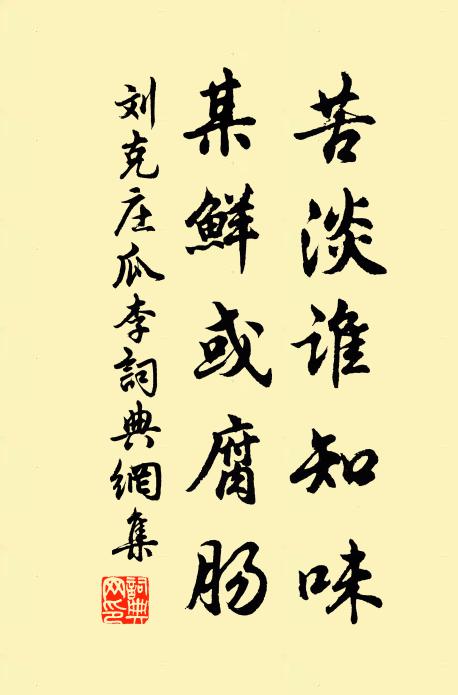 苦淡谁知味
某鲜或腐肠
刘克庄瓜李詞典網集
詞典网印